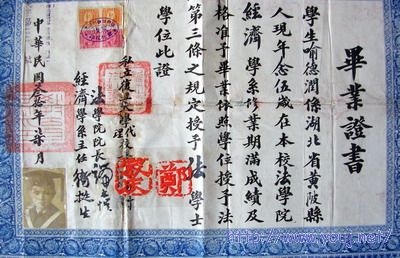 畢業證書
學生喻德潤係湖北省黃陂縣
人現年念伍歲在本校法學院
經濟學系修業期滿成績及
格准予畢業依照學位授予法
第三條之規定授予法學士
學位此證
私立復旦大學代理校長
法學院院長
經濟學系主任衛挺生
中華民國叁拾年柒月
鄭
http://www.youj.net/